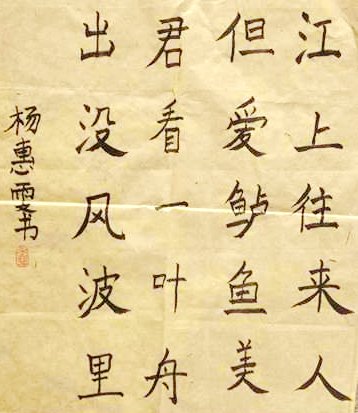 江上往来人
但爱鲈鱼美
君看一叶舟
出没风波里
杨惠雯书